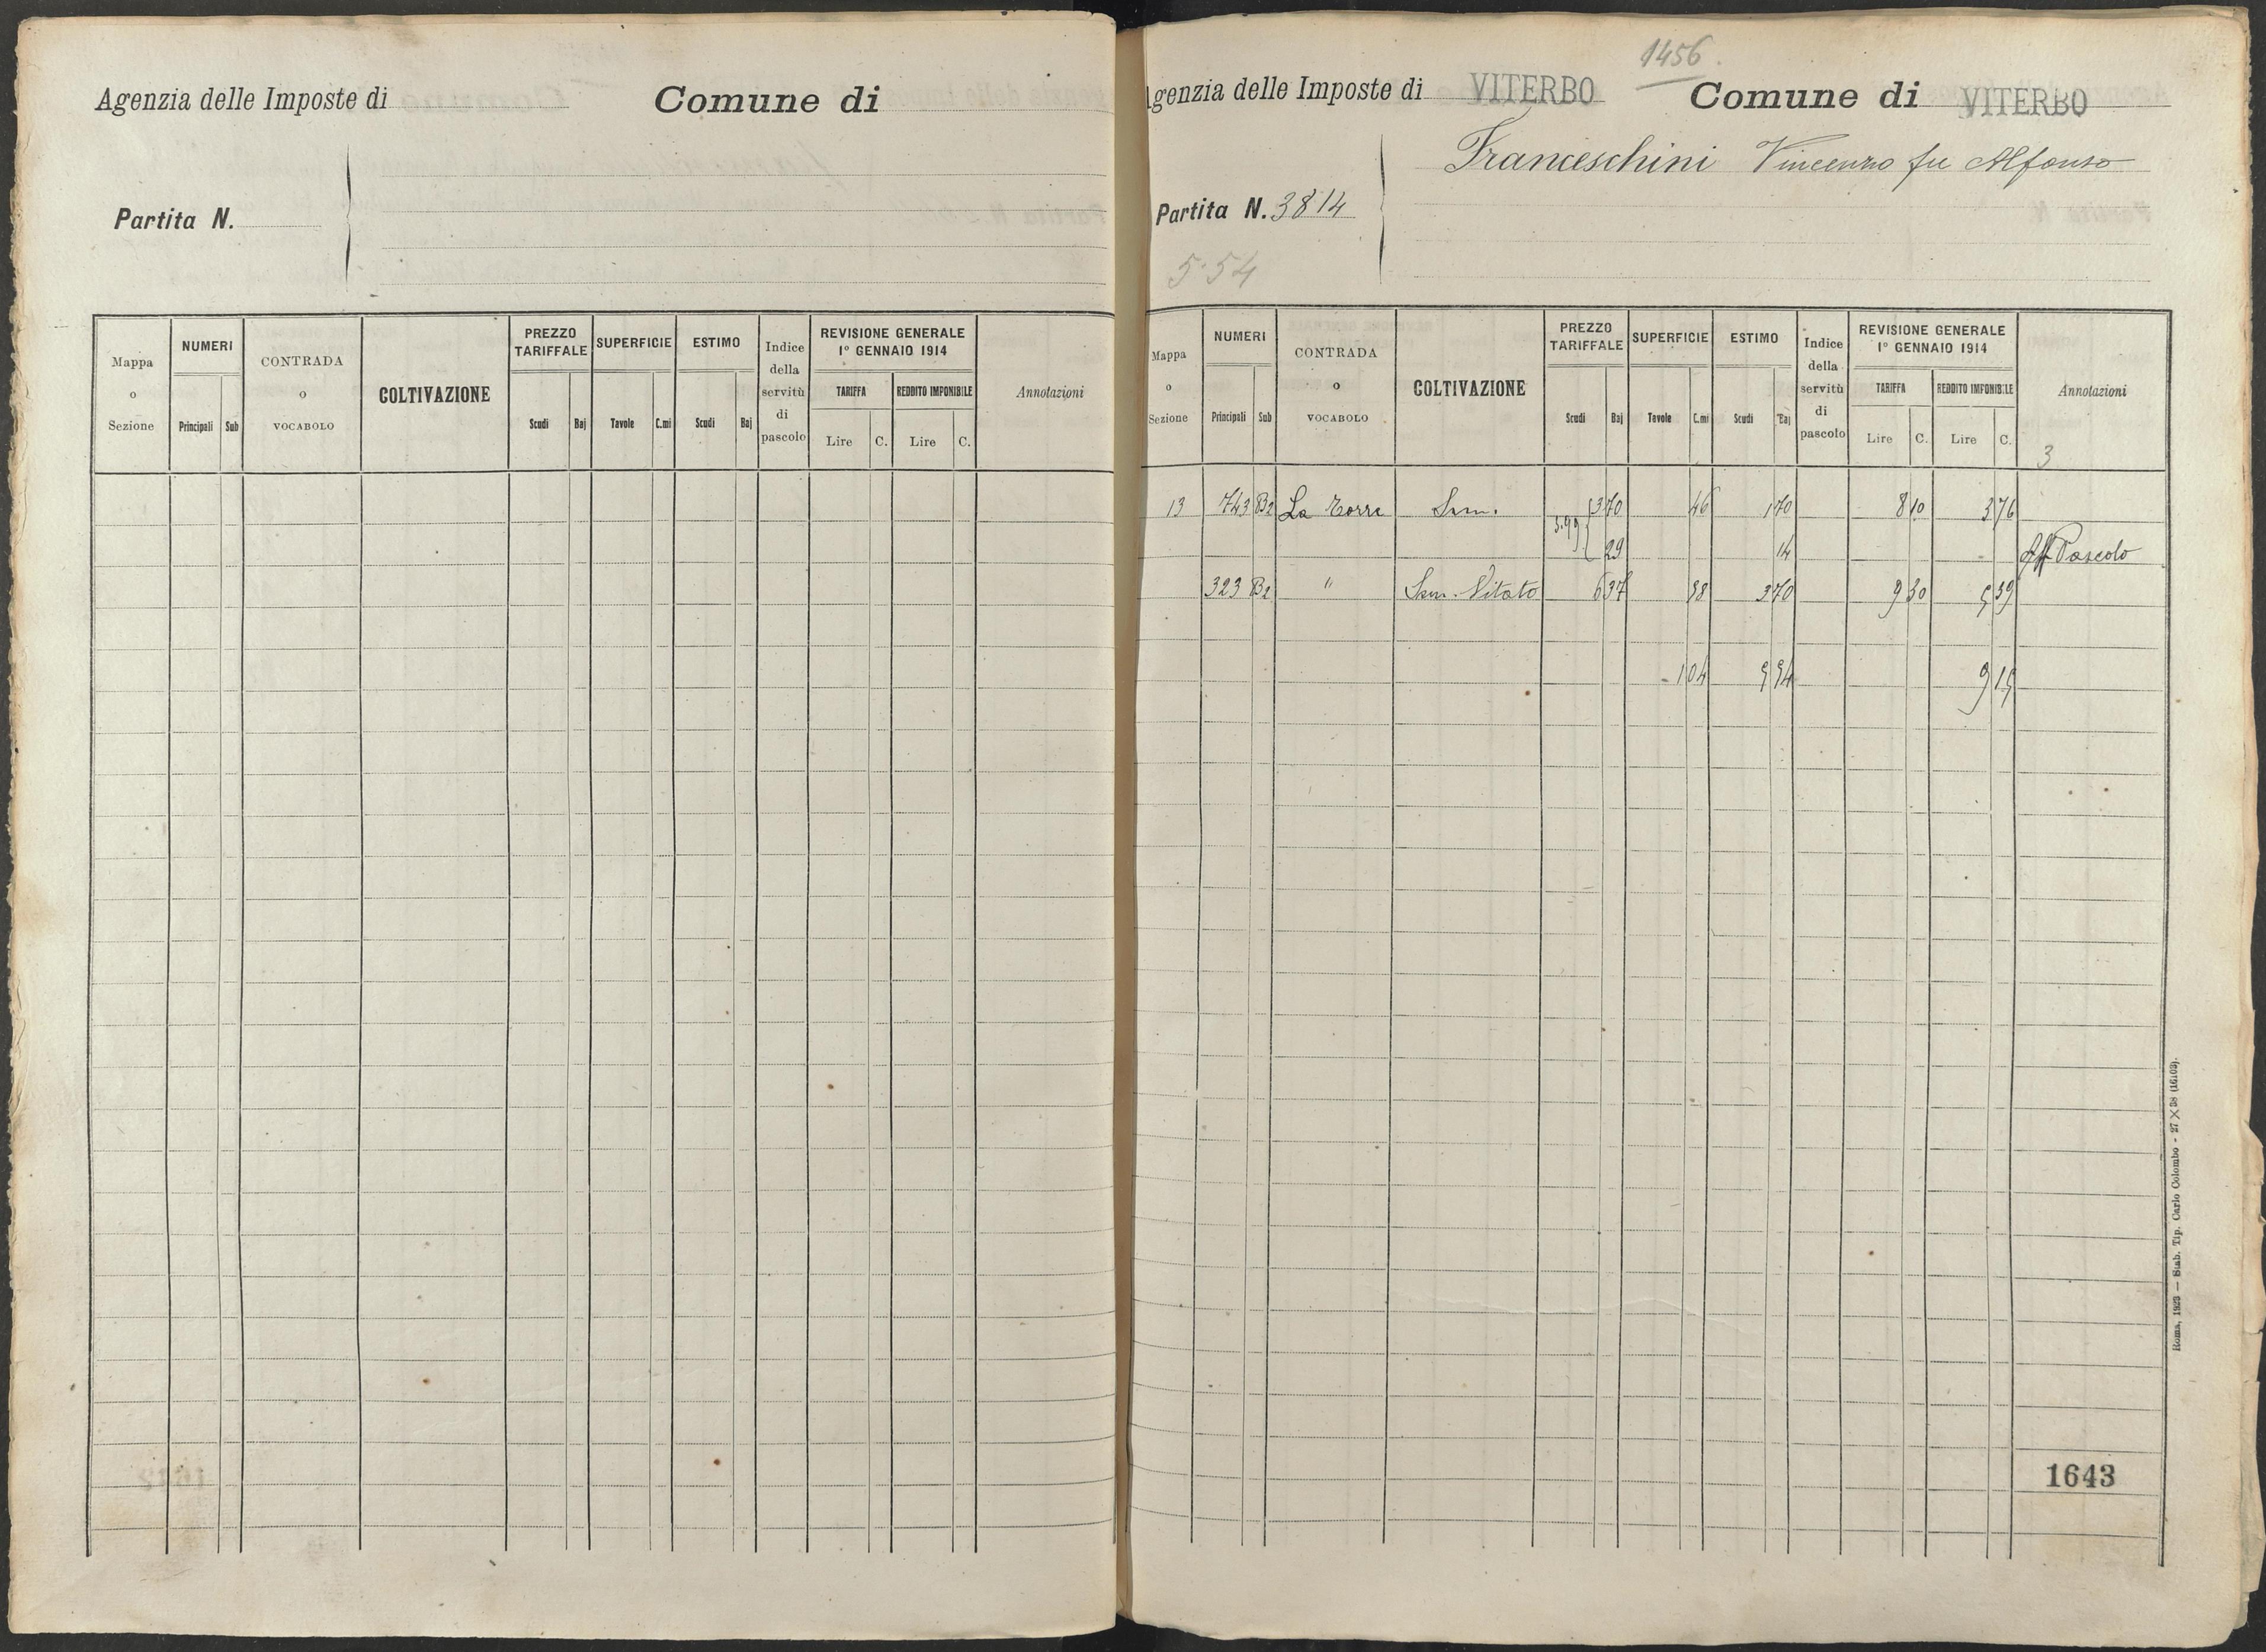 Agenzia delle Imposte di Comune di
Partita N.
Mappa o Sezione NUMERI Principali Sub CONTRADA o VOCABOLO COLTIVAZIONE PREZZO TARIFFALE Scudi Baj SUPERFICIE Tavole C.mi ESTIMO Scudi Baj Indice della servitù di pascolo REVISIONE GENERALE 1° GENNAIO 1914 TARIFFA Lire C. REDDITO IMPONIBILE Lire C. Annotazioni
1456.
Agenzia delle Imposte di VITERBO Comune di VITERBO
Franceschini Vincenzo fu Alfonso
Partita N. 3814
5.54
Mappa o Sezione NUMERI Principali Sub CONTRADA o VOCABOLO COLTIVAZIONE PREZZO TARIFFALE Scudi Baj SUPERFICIE Tavole C.mi ESTIMO Scudi Baj Indice della servitù di pascolo REVISIONE GENERALE 1° GENNAIO 1914 TARIFFA Lire C. REDDITO IMPONIBILE Lire C. Annotazioni
3
13 743 B2 La Torre Sem. 3 70 46 1 70 8 10 3 76
3.99 29 14 Aff Pascolo
323 B2 " Sem. Vitato 6 37 58 3 70 9 30 5 39
1 04 5 54 9 15
1643
Roma, 1923 — Stab. Tip. Carlo Colombo - 27 X 38 (16103).